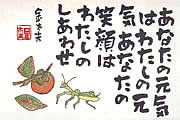 あなたの元気
はわたしの元
気あなたの
笑顔は
わたしの
しあわせ